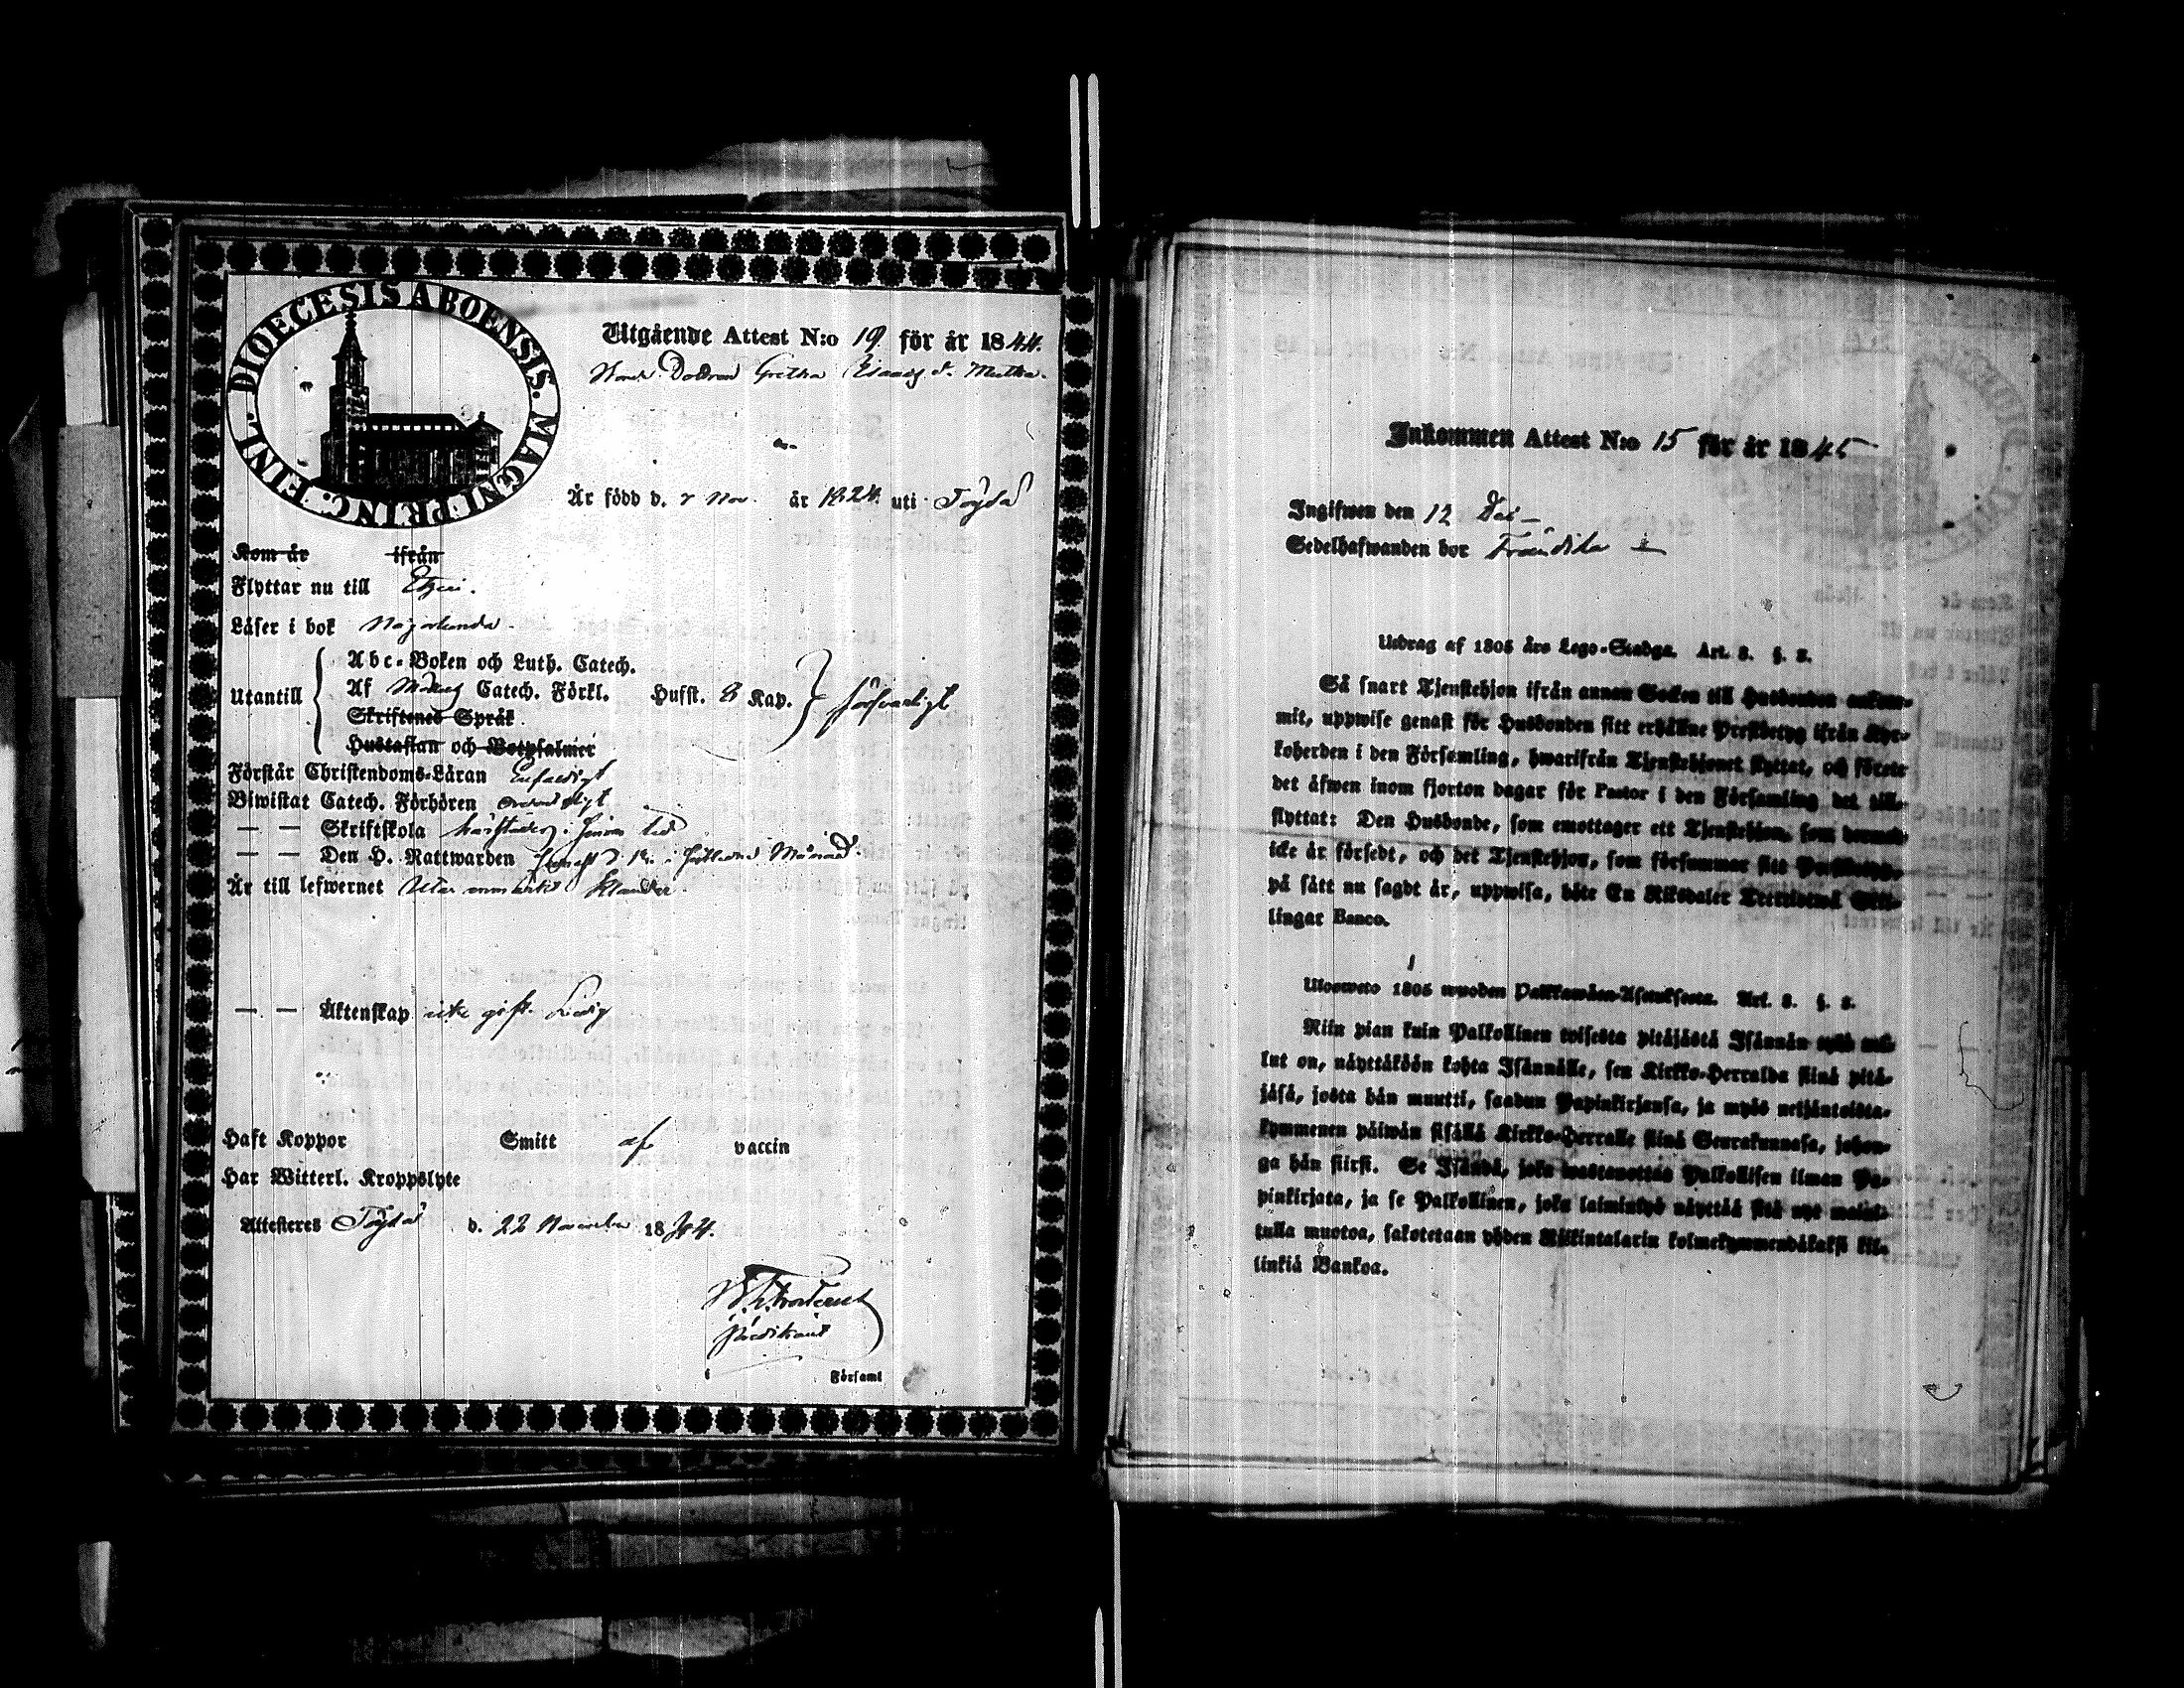 DIOECESIS ABOENSIS. MAGNI PRINC. FINL.
Utgående Attest N:o 19 för år 1844.
Dottren Gretha Isaacs d.
Är född d. 7 Nov. år 1824. uti Töysä
Kom år ifrån
Flyttar nu till Etseri.
Läser i bok Någorlunda.
Utantill
Abc-Boken och Luth. Catech.
Af Catech. Förkl. Husst. 8 Kap. försvarligt
Skriftenes Språk
Hustaflan och Botpsalmer
Förstår Christendoms-Läran Enfaldigt
Biwistat Catech. Förhören ordentligt
— — Skriftskola i sinom tid
— — Den H. Nattwarden senast d. 18. i Månad
Är till lefwernet utan anmärkt klander.
— — Äktenskap icke gift. Ledig
Haft Koppor Smitt af vaccin
Har Witterl. Kroppslyte
Attesteras Töysä d. 22 November 1844.
Predikant
i Församl
Inkommen Attest N:o 15 för år 1845
Ingifwen den 12
Sedelhafwanden bor
Utdrag af 1805 års Lego-Stadga. Art. 8. §. 8.
Så snart Tjenstehjon ifrån annan Socken till Husbonden ankom-
mit, uppwise genast för Husbonden sitt erhållne Prestbetyg ifrån Kyr-
koherden i den Församling, hwarifrån Tjenstehjonet flyttat, och förete
det äfwen inom fjorton dagar för Pastor i den Församling det till-
flyttat: Den Husbonde, som emottager ett Tjenstehjon, som dermed
icke är försedt, och det Tjenstehjon, som försummar sitt Prestbetyg,
på sätt nu sagdt är, uppwisa, böte En Riksdaler Trettiotwå Skil-
lingar Banco.
Ulosweto 1805 wuoden Palkkawäen-Asetuksesta. Art. 8. §. 8.
Niin pian kuin Palkollinen toisesta pitäjästä Isännän tykö tul-
lut on, näyttäköön kohta Isännälle, sen Kirkko-Herralda siinä pitä-
jäsä, josta hän muutti, saadun Papinkirjansa, ja myös neljäntoista-
kymmenen päiwän sisällä Kirkko-Herralle siinä Seurakunnasa, johon-
ga hän siirsi. Se Isäntä, joka wastanottaa Palkollisen ilman Pa-
pinkirjata, ja se Palkollinen, joka laiminlyö näyttää sitä nyt mainit-
tulla muotoa, sakotetaan yhden Riikintalarin kolmekymmendäkaksi kil-
linkiä Bankoa.